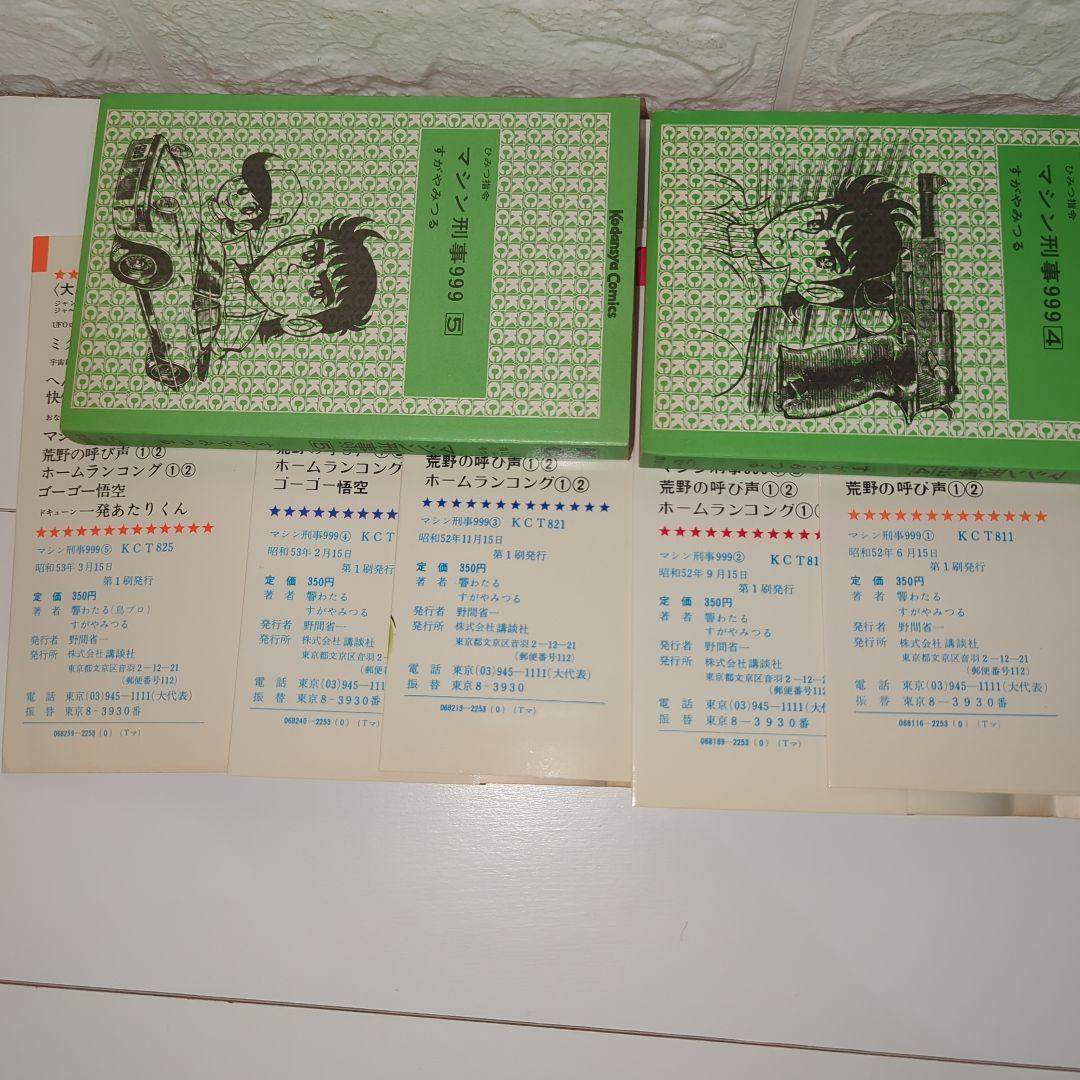 ひみつ指令
マシン刑事999 5
すがやみつる
Kodansya Comics
ひみつ指令
マシン刑事999 4
すがやみつる
荒野の呼び声①②
ホームランコング①②
ゴーゴー悟空
ドキューン一発あたりくん
★★★★★★★★★★★★★
マシン刑事999⑤ KCT825
昭和53年3月15日
第1刷発行
定価 350円
著者 響わたる(鳥プロ)
すがやみつる
発行者 野間省一
発行所 株式会社講談社
東京都文京区音羽2-12-21
(郵便番号112)
電話 東京(03)945-1111(大代表)
振替 東京8-3930番
068259-2253(0)(Tマ)
ホームランコング
ゴーゴー悟空
マシン刑事999④ KCT
昭和53年2月15日
第1刷発行
定価 350円
著者 響わたる
すがやみつる
発行者 野間省一
発行所 株式会社講談社
東京都文京区音羽2
(郵便番号
電話 東京(03)945-111
振替 東京8-3930番
068240-2253(0)(Tマ
荒野の呼び声①②
ホームランコング①②
★★★★★★★★★★★★★
マシン刑事999③ KCT821
昭和52年11月15日
第1刷発行
定価 350円
著者 響わたる
すがやみつる
発行者 野間省一
発行所 株式会社講談社
東京都文京区音羽2-12-21
(郵便番号112)
電話 東京(03)945-1111(大代表)
振替 東京8-3930
068213-2253(0)(Tマ)
荒野の呼び声①②
ホームランコング①
マシン刑事999② KCT81
昭和52年9月15日
第1刷発行
定価 350円
著者 響わたる
すがやみつる
発行者 野間省一
発行所 株式会社講談社
東京都文京区音羽2-12-2
(郵便番号112
電話 東京(03)945-1111(大
振替 東京8-3930番
068189-2253(0)(Tマ)
荒野の呼び声①②
★★★★★★★★★★★★★
マシン刑事999① KCT811
昭和52年6月15日
第1刷発行
定価 350円
著者 響わたる
すがやみつる
発行者 野間省一
発行所 株式会社講談社
東京都文京区音羽2-12-21
(郵便番号112)
電話 東京(03)945-1111(大代表)
振替 東京8-3930番
068116-2253(0)(Tマ)